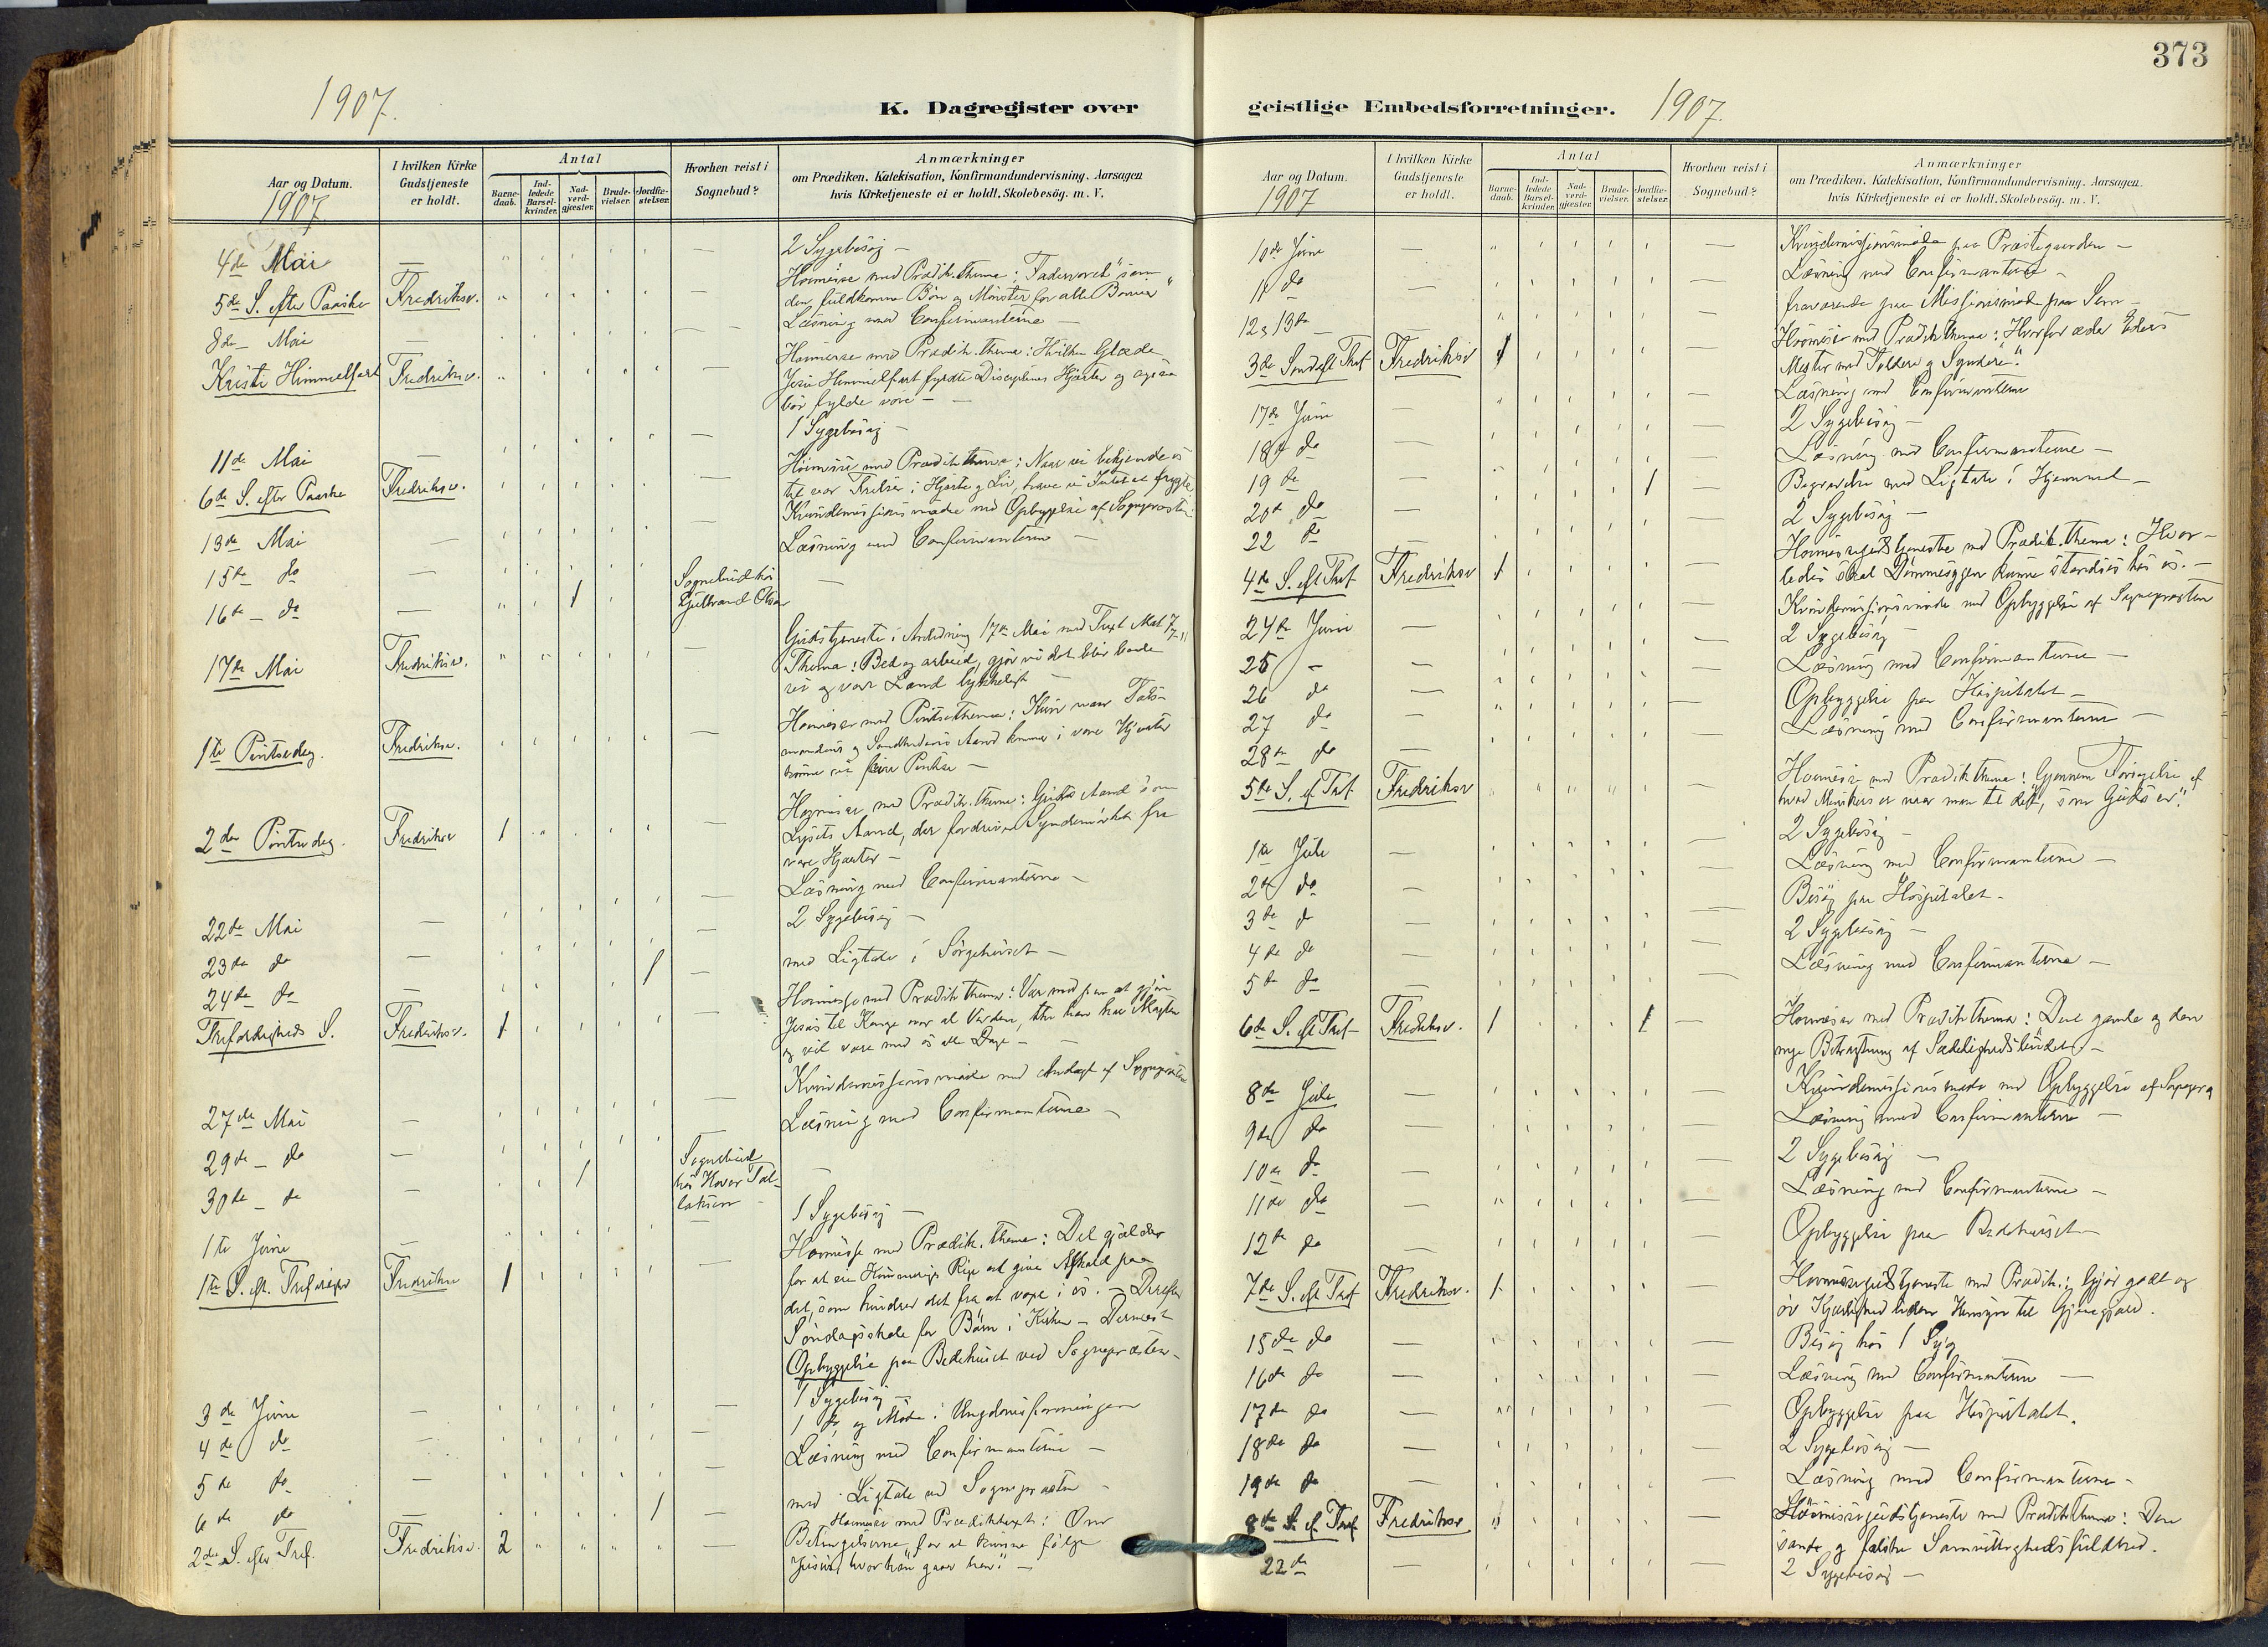 373
1907.
K. Dagregister over
geistlige Embedsforretninger.
1907.
Aar og Datum.
1907
I hvilken Kirke Gudstjeneste er holdt.
Antal
Barne-daab.
Ind-ledede Barsel-kvinder.
Nad-verd-gjæster.
Brude-vielser.
Jordfæ-stelser.
Hvorhen reist i Sognebud?
Anmærkninger
om Prædiken. Katekisation, Konfirmandundervisning. Aarsagen
hvis Kirketjeneste ei er holdt. Skolebesög. m. V.
4de Mai — 2 Sygebesøg —
5te S. efter Paaske Fredriksv. Høimesse med Prædik. thema: "Fadervoret" som
den fuldkomne Bøn og Mønster for alle Bønner"
8de Mai — Læsning med Confirmanterne —
Kristi Himmelfart Fredriksv. Høimesse med Prædik. thema: Hvilken Glæde
Jesu Himmelfart fyldte Disciplenes Hjerter og ogsaa
bør fylde vore —
11te Mai — 1 Sygebesøg —
6te S. efter Paaske Fredriksv. Høimesse med Prædik thema: Naar vi bekjende os
til vor Frelser i Hjerte og Liv, have vi Intet at frygte.
13de Mai — Kvindemissionsmøde med Opbyggelse af Sognepræsten
15de do — Læsning med Confirmanterne —
16de do — 1 Sognebud hos
Gulbrand Olsen
17de Mai Fredriksv. Gudstjeneste i Anledning 17de Mai med Text Mat 7, 7-11
Thema: Bed og arbeid, gjør vi det blir baade
vi og vort Land lykkeligt —
1ste Pintsedag. Fredriksv. Høimesse med Pintsethema: Kun naar Tals-
mandens og Sandhedens Aand kommer i vore Hjerter
kunne vi feire Pintse —
2den Pintsedag. Fredriksv 1 Høimesse med Prædik. thema: Guds Aand som
Lysets Aand, der fordriver Syndemørket fra
vore Hjerter —
22de Mai — Læsning med Confirmanterne —
23de do — 2 Sygebesøg —
24de do — 1 med Ligtale i Sørgehuset —
Trefoldigheds S. Fredriksv. 1 Høimesse med Prædik thema: Vær med paa at gjøre
Jesus til Konge over al Verden, thi han har Magten
og vil være med os alle Dage —
27de Mai — Kvindemissionsmøde med Andagt af Sognepræsten
29de do — Læsning med Confirmanterne —
30de do — 1 Sognebud
hos Haver
1ste Juni — 1 Sygebesøg —
1ste S. eft. Tref. Fredriksv 1 Høimesse med Prædik. thema: Det gjælder
for at eie Himmeriges Rige at give Afkald paa
det, som hindrer det fra at voxe i os. — Derefter
Søndagsskole for Børn i Kirken — Dernæst
Opbyggelse paa Bedehuset ved Sognepræsten —
3de Juni — 1 Sygebesøg —
4de do — 1 do og Møde i Ungdomsforeningen
5te do — Læsning med Confirmanterne —
6te do 1 — med Ligtale ved Sognepræsten —
2den S. efter Tref. Fredriksv. 2 Høimesse med Prædiktext: Om
Betingelserne for at kunne følge
Jesus, hvorhen han gaar hen." —
Aar og Datum.
1907
I hvilken Kirke Gudstjeneste er holdt.
Antal
Barne-daab.
Ind-ledede Barsel-kvinder.
Nad-verd-gjæster.
Brude-vielser.
Jordfæ-stelser.
Hvorhen reist i Sognebud?
Anmærkninger
om Prædiken. Katekisation, Konfirmandundervisning. Aarsagen
hvis Kirketjeneste ei er holdt. Skolebesög. m. V.
10de Juni — Kvindemissionsmøde paa Præstegaarden —
11te do — Læsning med Confirmanterne —
12 & 13de — fraværende paa Missionsmøde paa
3de Sønd eft Tref Fredriksv 1 Høimesse med Prædik thema: Hvorfor æder Eders
Mester med Toldere og Syndere".
17de Juni — Læsning med Confirmanterne
18de do — 2 Sygebesøg —
19de — Læsning med Confirmanterne —
20de do — 1 Begravelse med Ligtale i Hjemmet —
22 do — 2 Sygebesøg —
4de S. eft Tref Fredriksv 1 Høimessegudstjeneste med Prædik. thema: Hvor-
ledes skal Dømmesygen kunne standses hos os. —
24de Juni — Kvindemissionsmøde med Opbyggelse af Sognepræsten
25 — 2 Sygebesøg —
26 do — Læsning med Confirmanterne —
27 do — Opbyggelse paa Hospitalet —
28de do — Læsning med Confirmanterne —
5te S. ef Tref Fredriksv Høimesse med Prædik thema: Gjennem Forsagelse af
hvad Menskers er naar man til det, som Guds er".
1ste Juli — 2 Sygebesøg —
2de do — Læsning med Confirmanterne —
3de do — Besøg paa Hospitalet —
4de do — 2 Sygebesøg —
5te do — Læsning med Confirmanterne —
6te S. ef Tref Fredriksv. 1 1 Høimesse med Prædik thema: Den gamle og den
nye Betragtning af Sædelighedsbudet —
8de Juli — Kvindemissionsmøde med Opbyggelse af Sognepr
9de do — Læsning med Confirmanterne —
10de do — 2 Sygebesøg —
11te do — Læsning med Confirmanterne —
12te do — Opbyggelse paa Bedehuset —
7de S. eft Tref Fredriksv. 1 Høimessegudstjeneste med Prædik.: Gjør godt og
øv Kjærlighed uden Hensyn til Gjengjæld.
15de do — Besøg hos 1 Syg
16de do — Læsning med Confirmanterne —
17de do — Opbyggelse paa Hospitalet.
18de do — 2 Sygebesøg —
19de do — Læsning med Confirmanterne —
8de S. ef Tref Fredriksv Høimessegudstjeneste med Prædik thema: Den
sande og falske Samvittighedsfuldhed.
22de — 2 Sygebesøg —